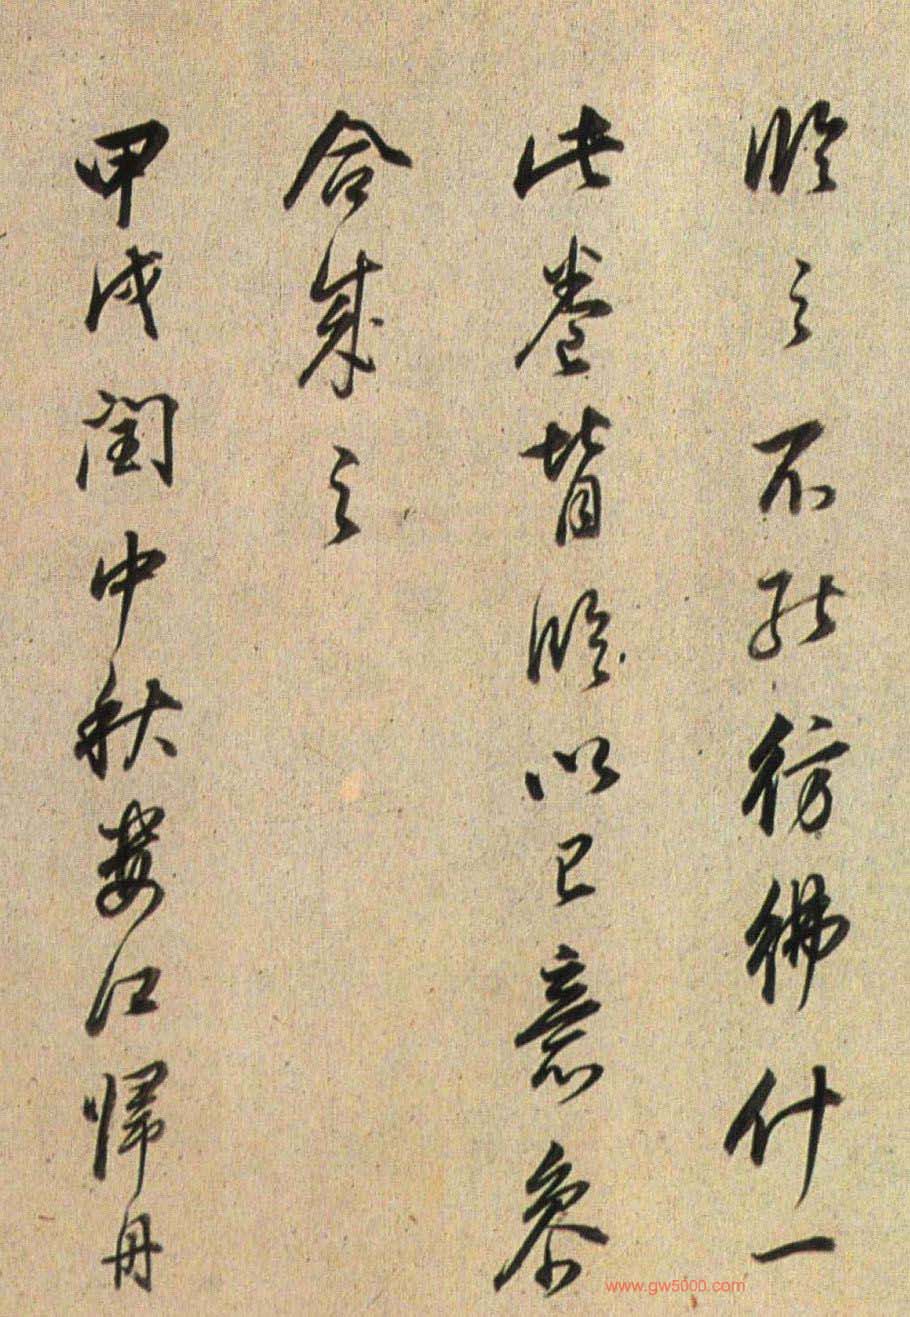 臨之不能彷彿什一
此卷皆臨以己意參
合成之
甲戌閏中秋婁江歸舟
www.gw5000.com